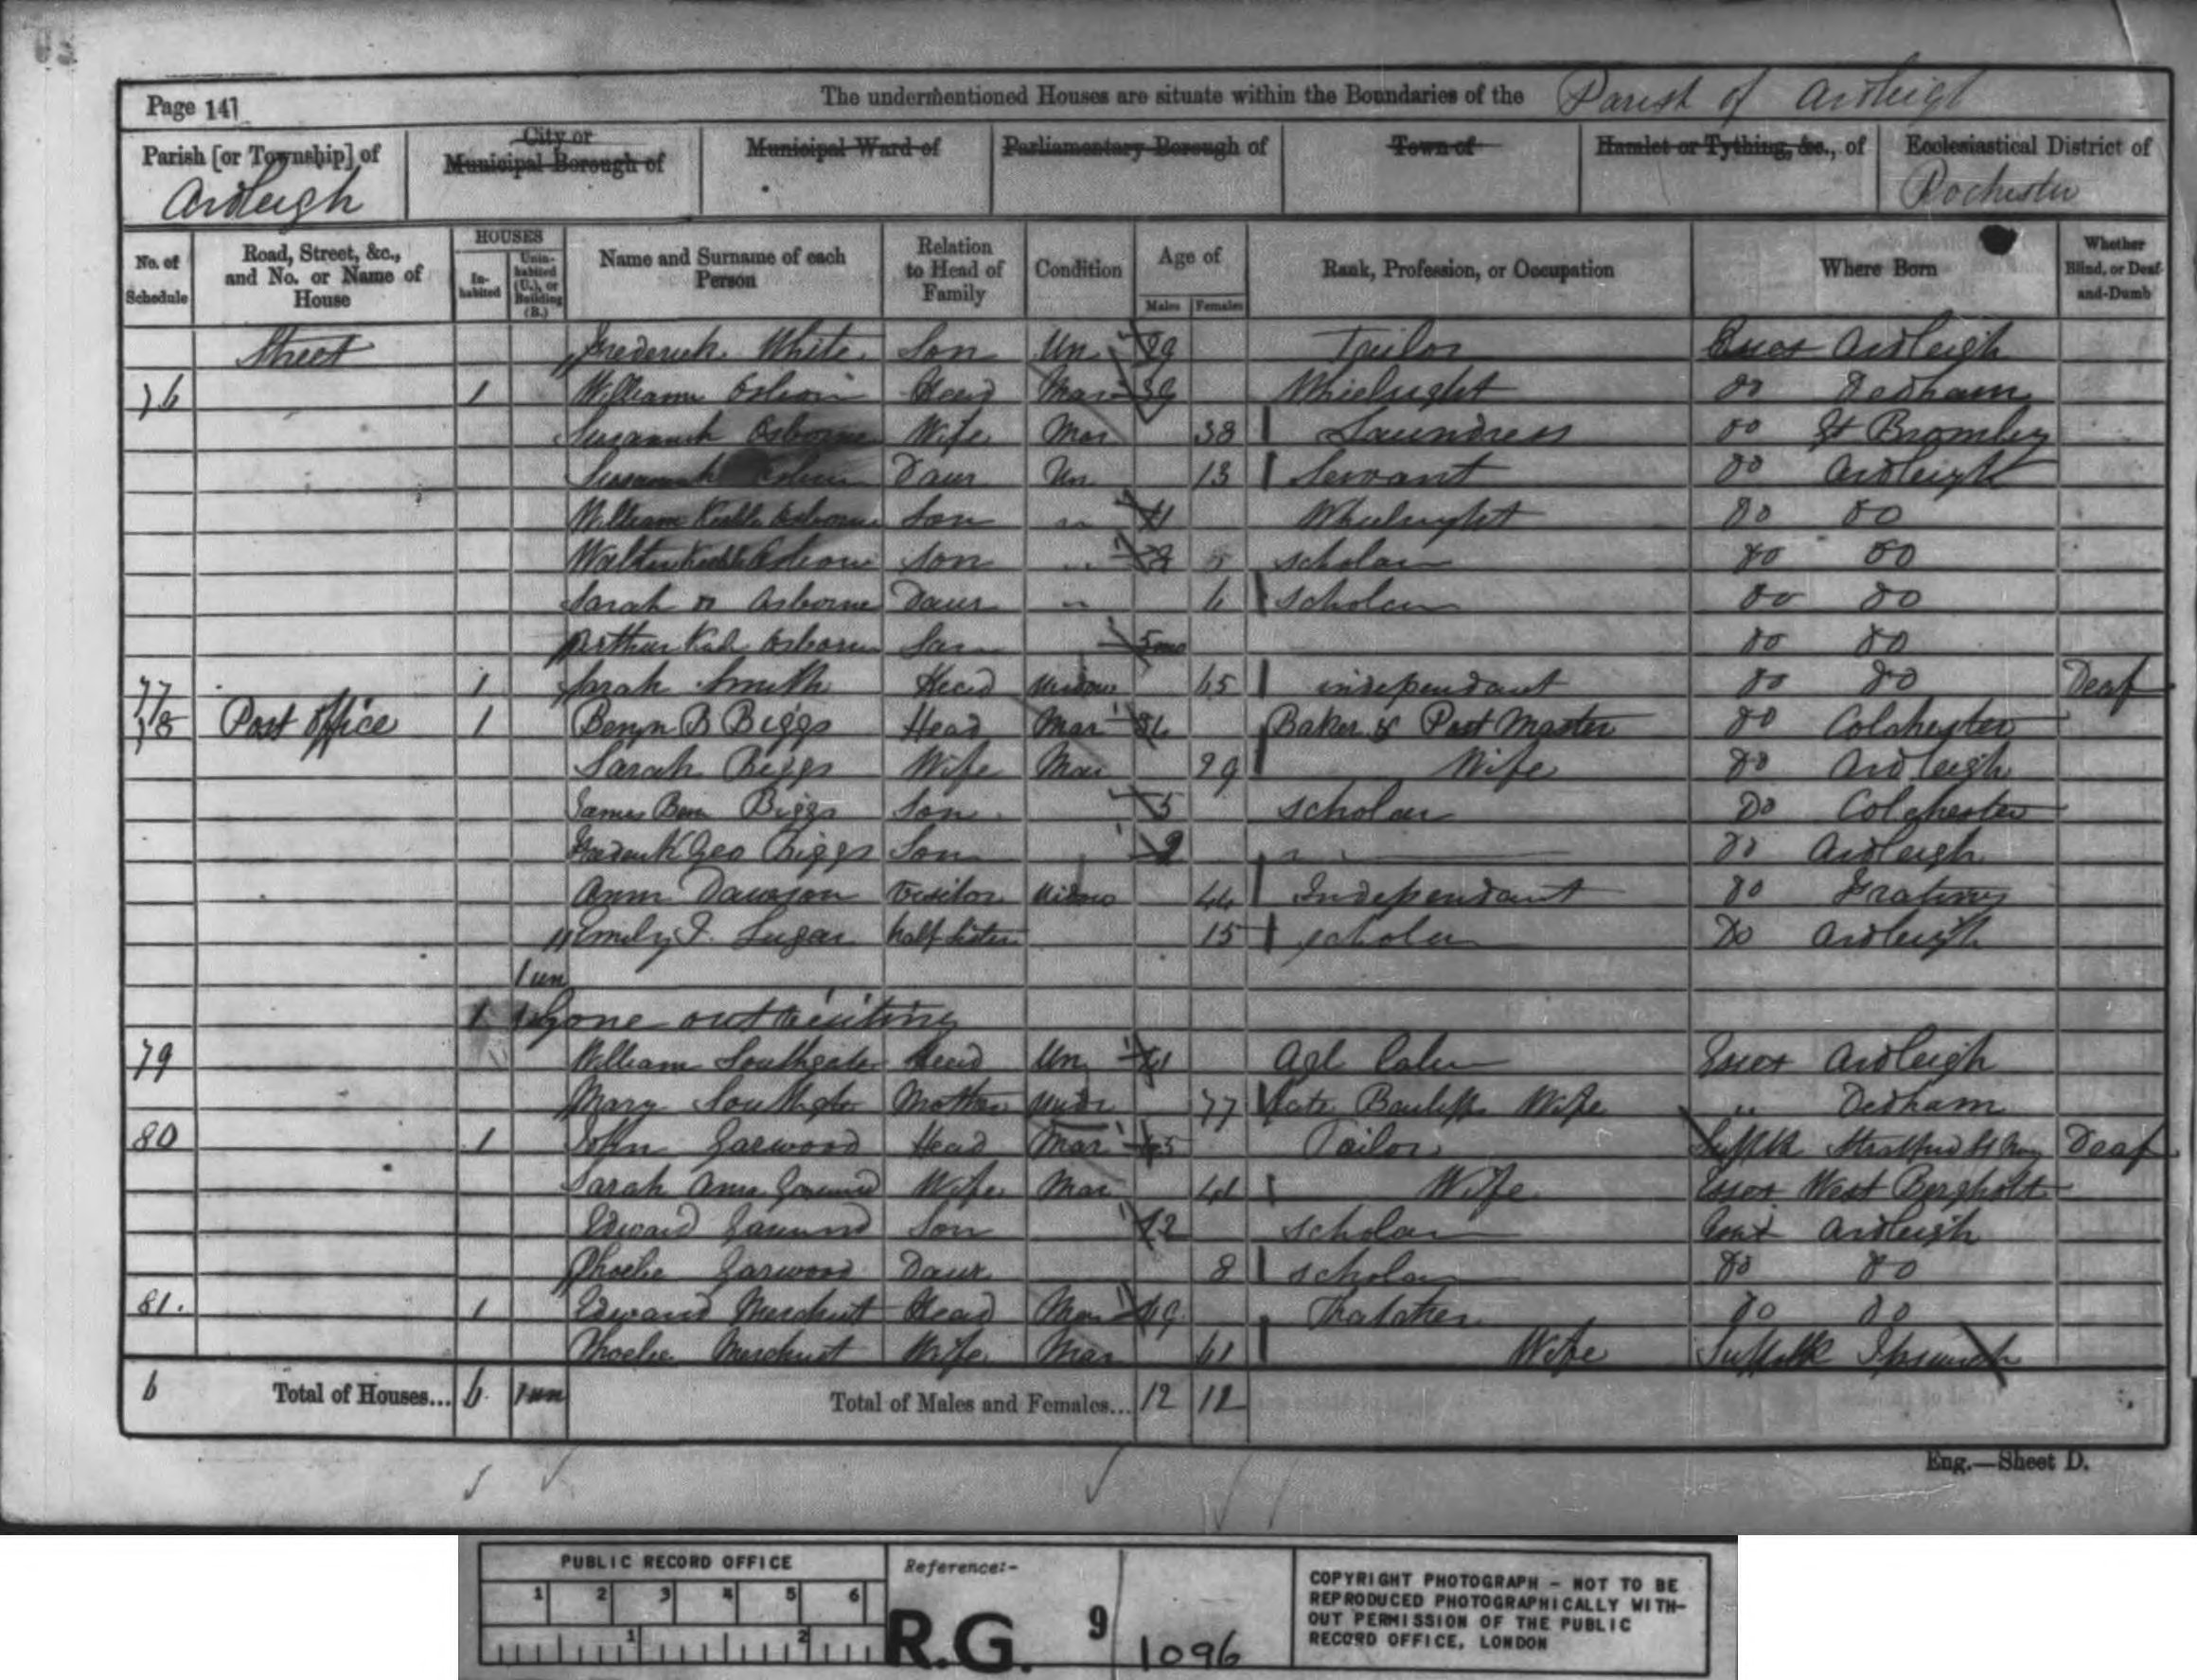 Page 14]
The undermentioned Houses are situate within the Boundaries of the Parish of Ardleigh
Parish [or Township] of Ardleigh
City or Municipal Borough of
Municipal Ward of
Parliamentary Borough of
Town of
Hamlet or Tything, &c., of
Ecclesiastical District of Rochester
No. of Schedule
Road, Street, &c., and No. or Name of House
HOUSES
Inhabited
Uninhabited (U.), or Building (B.)
Name and Surname of each Person
Relation to Head of Family
Condition
Age of
Males
Females
Rank, Profession, or Occupation
Where Born
Whether Blind, or Deaf-and-Dumb
Street Frederick White Son Un 29 Tailor Essex Ardleigh
76 1 William Head Mar 39 Do Dedham
Susannah Osborne Wife Mar 38 Laundress Do Gt Bromley
Susannah Daur Un 13 Servant Do Ardleigh
William Osborne Son 11 Do Do
Walter Son scholar Do Do
Sarah Osborne Daur 6 scholar Do Do
Arthur Osborne Son 5 mo Do Do
77 1 Sarah Smith Head Widow 65 independant Do Do Deaf
78 Post office 1 Benjn B Biggs Head Mar Baker & Post Master Do Colchester
Sarah Biggs Wife Mar 29 Wife Do Ardleigh
James Ben Biggs Son 5 scholar Do Colchester
Frederick Geo Biggs Son 2 Do Ardleigh
Ann Dawson Visitor Widow 44 Independant Do Frating
Emily J. Lugar half sister 15 scholar Do Ardleigh
1 un
1 Gone out visiting
79 William Southgate Head Un 41 Agl Labr Essex Ardleigh
Mary Southgate Mother 77 Late Bailiffs Wife " Dedham
80 1 John Garwood Head Mar 45 Tailor Suffolk Stratford St Mary Deaf
Sarah Ann Garwood Wife Mar Wife Essex West Bergholt
Edward Garwood Son 12 scholar Essex Ardleigh
Phoebe Garwood Daur 8 scholar Do Do
81. 1 Edward Merchant Head Mar Thatcher Do Do
Phoebe Merchant Wife Mar 61 Wife Suffolk Ipswich
6 Total of Houses... 6 1 un Total of Males and Females... 12 12
Eng.—Sheet D.
PUBLIC RECORD OFFICE
1 2 3 4 5 6
1 2
Reference:-
R.G. 9
1096
COPYRIGHT PHOTOGRAPH - NOT TO BE
REPRODUCED PHOTOGRAPHICALLY WITH-
OUT PERMISSION OF THE PUBLIC
RECORD OFFICE, LONDON